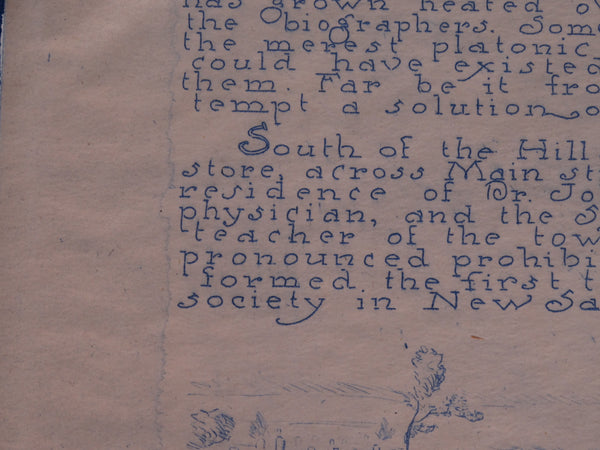 has grown heated
the biographers. Som
the merest platonic
could have existed
them. Far be it fro
tempt a solution o
South of the Hill
store, across Main st
residence of Dr. Jo
physician, and the S
teacher of the tow
pronounced prohibi
formed the first t
society in New Sa